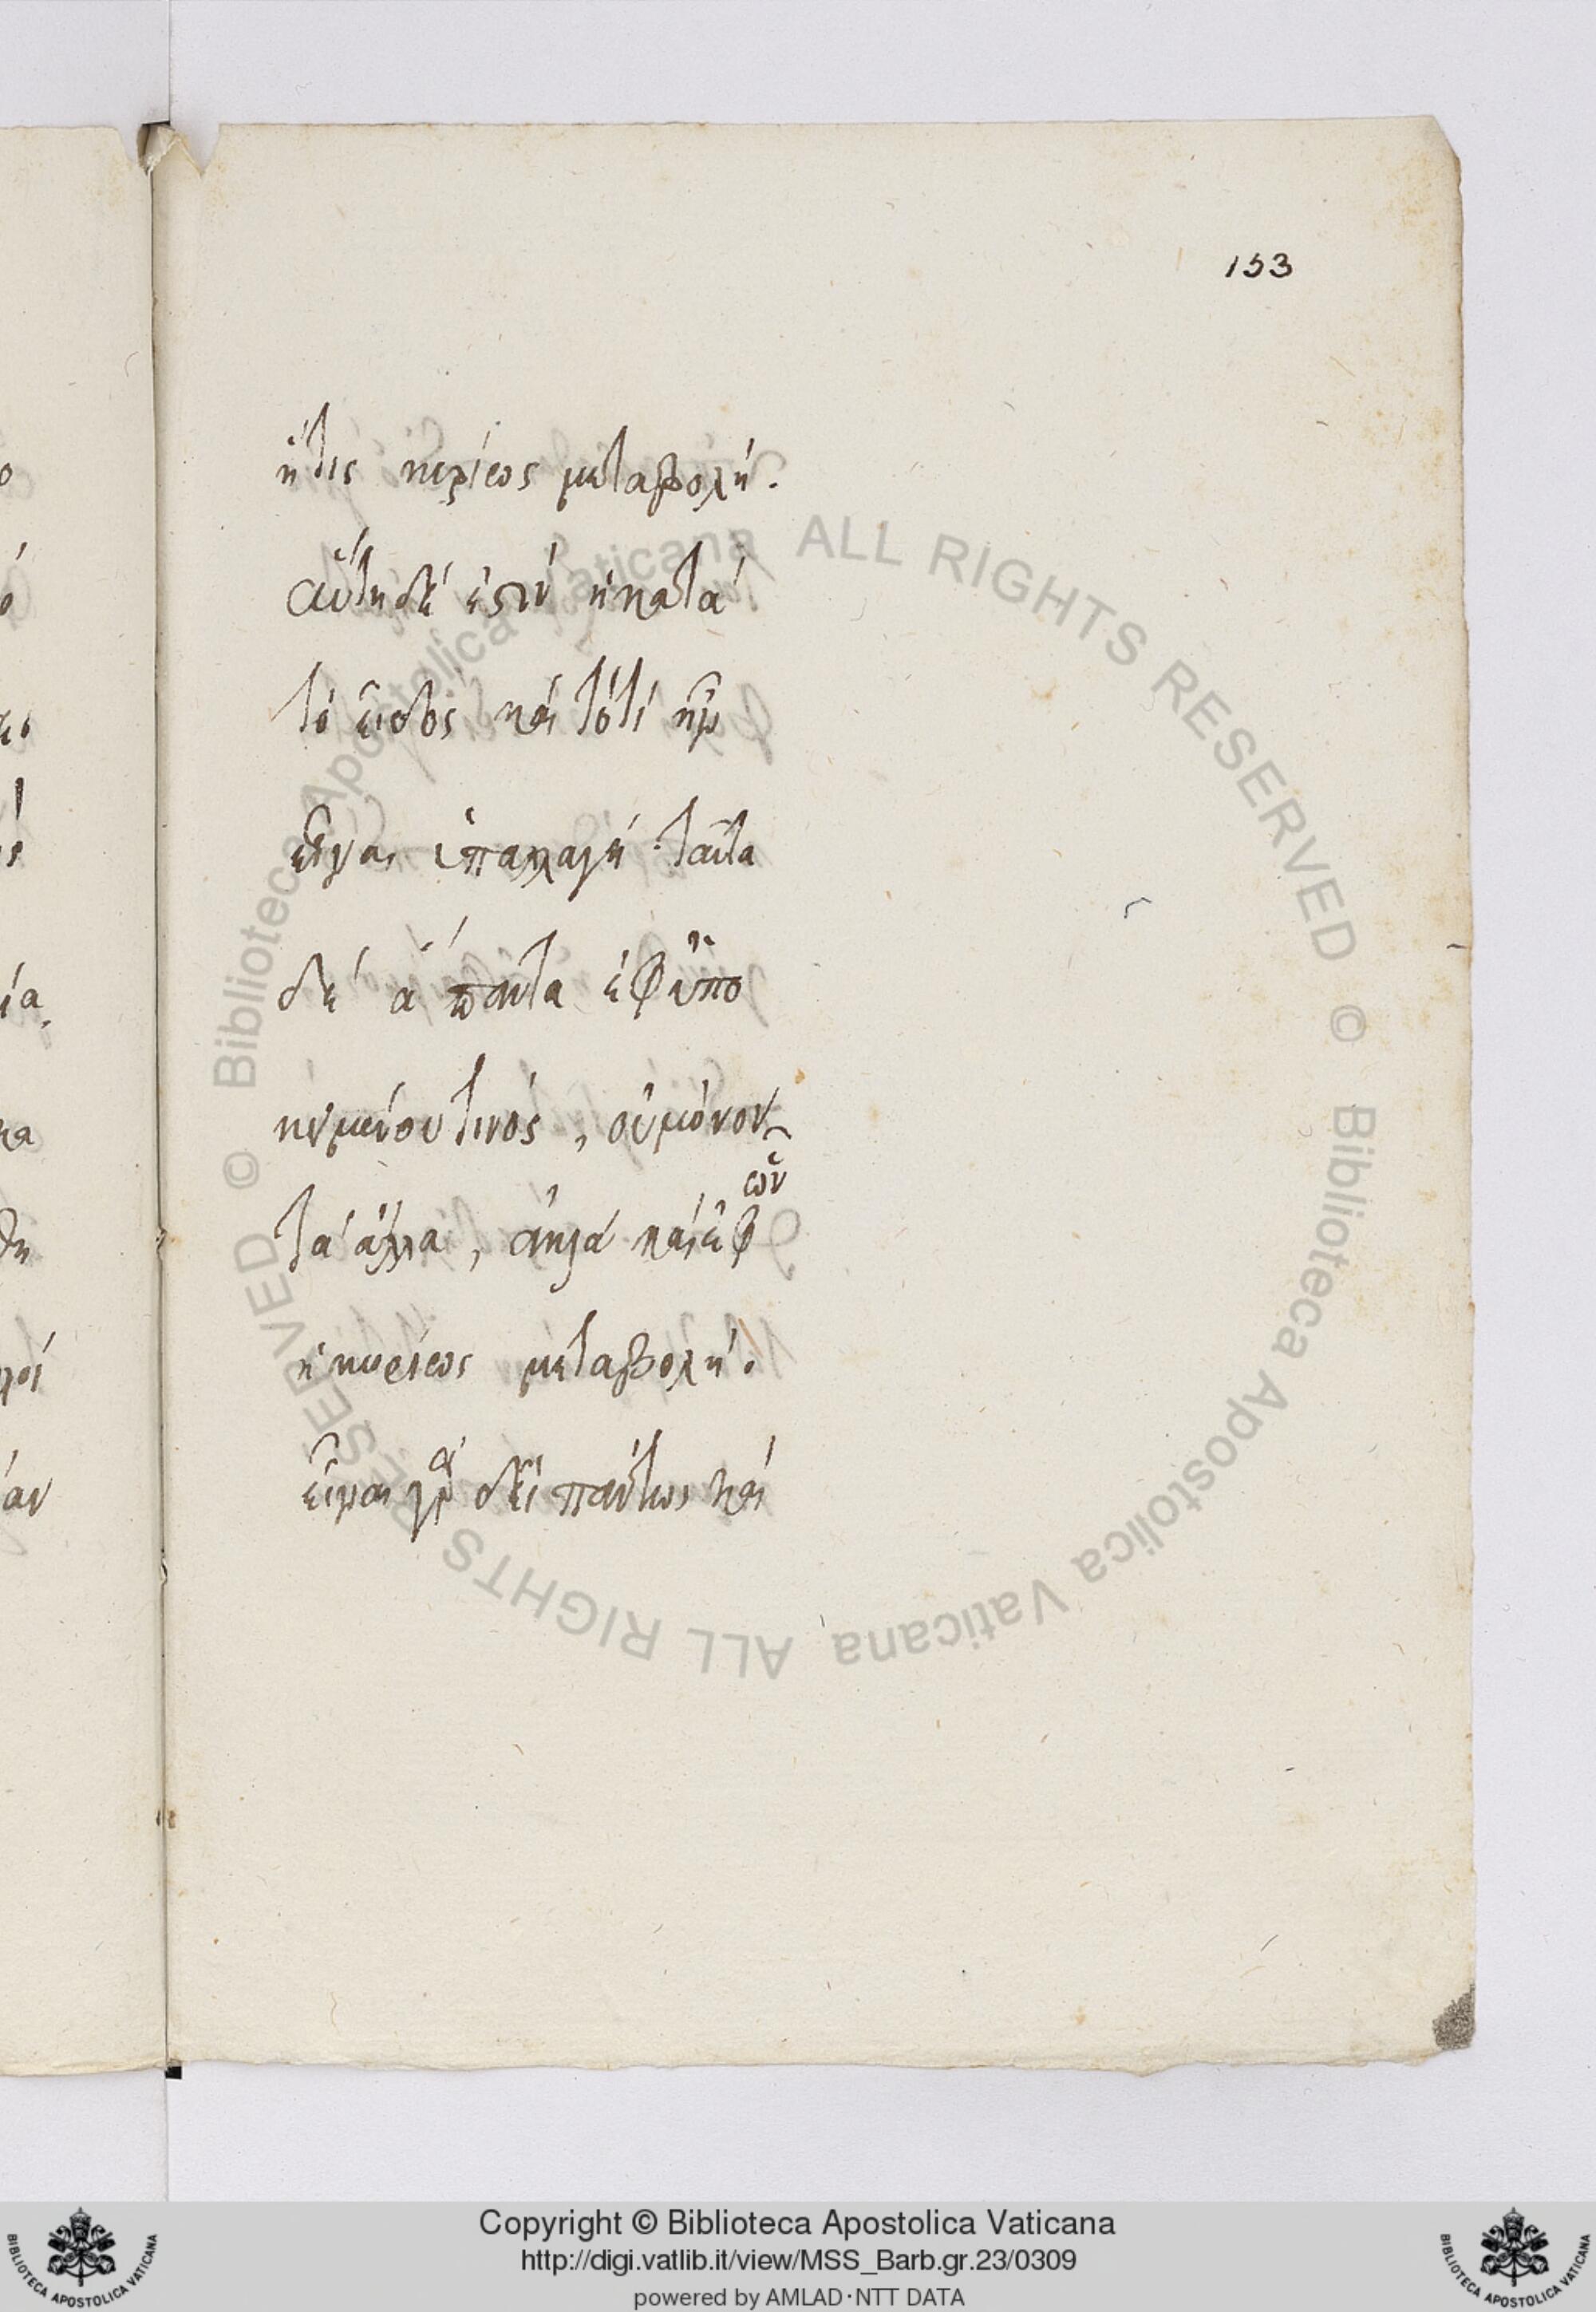 153
ἥτις κυρίως μεταβολή.
αὕτη δέ ἐστιν ἡ κατά
τό εἶδος καί τό τί ἦν
εἶναι ὑπαλλαγή· ταῦτα
δέ ἅπαντα ἐφ ὑπο
κειμένου τινός, οὐ μόνον
τά ἄλλα, ἀλλά καί ἐφ ὧν
ἡ κυρίως μεταβολή.
εἶναι γάρ δεῖ πάντως καί
Copyright © Biblioteca Apostolica Vaticana
http://digi.vatlib.it/view/MSS_Barb.gr.23/0309
powered by AMLAD·NTT DATA
© Biblioteca Apostolica Vaticana ALL RIGHTS RESERVED © Biblioteca Apostolica Vaticana ALL RIGHTS RESERVED
BIBLIOTECA APOSTOLICA VATICANA
BIBLIOTECA APOSTOLICA VATICANA